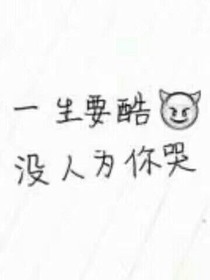 一生要酷😈
没人为你哭